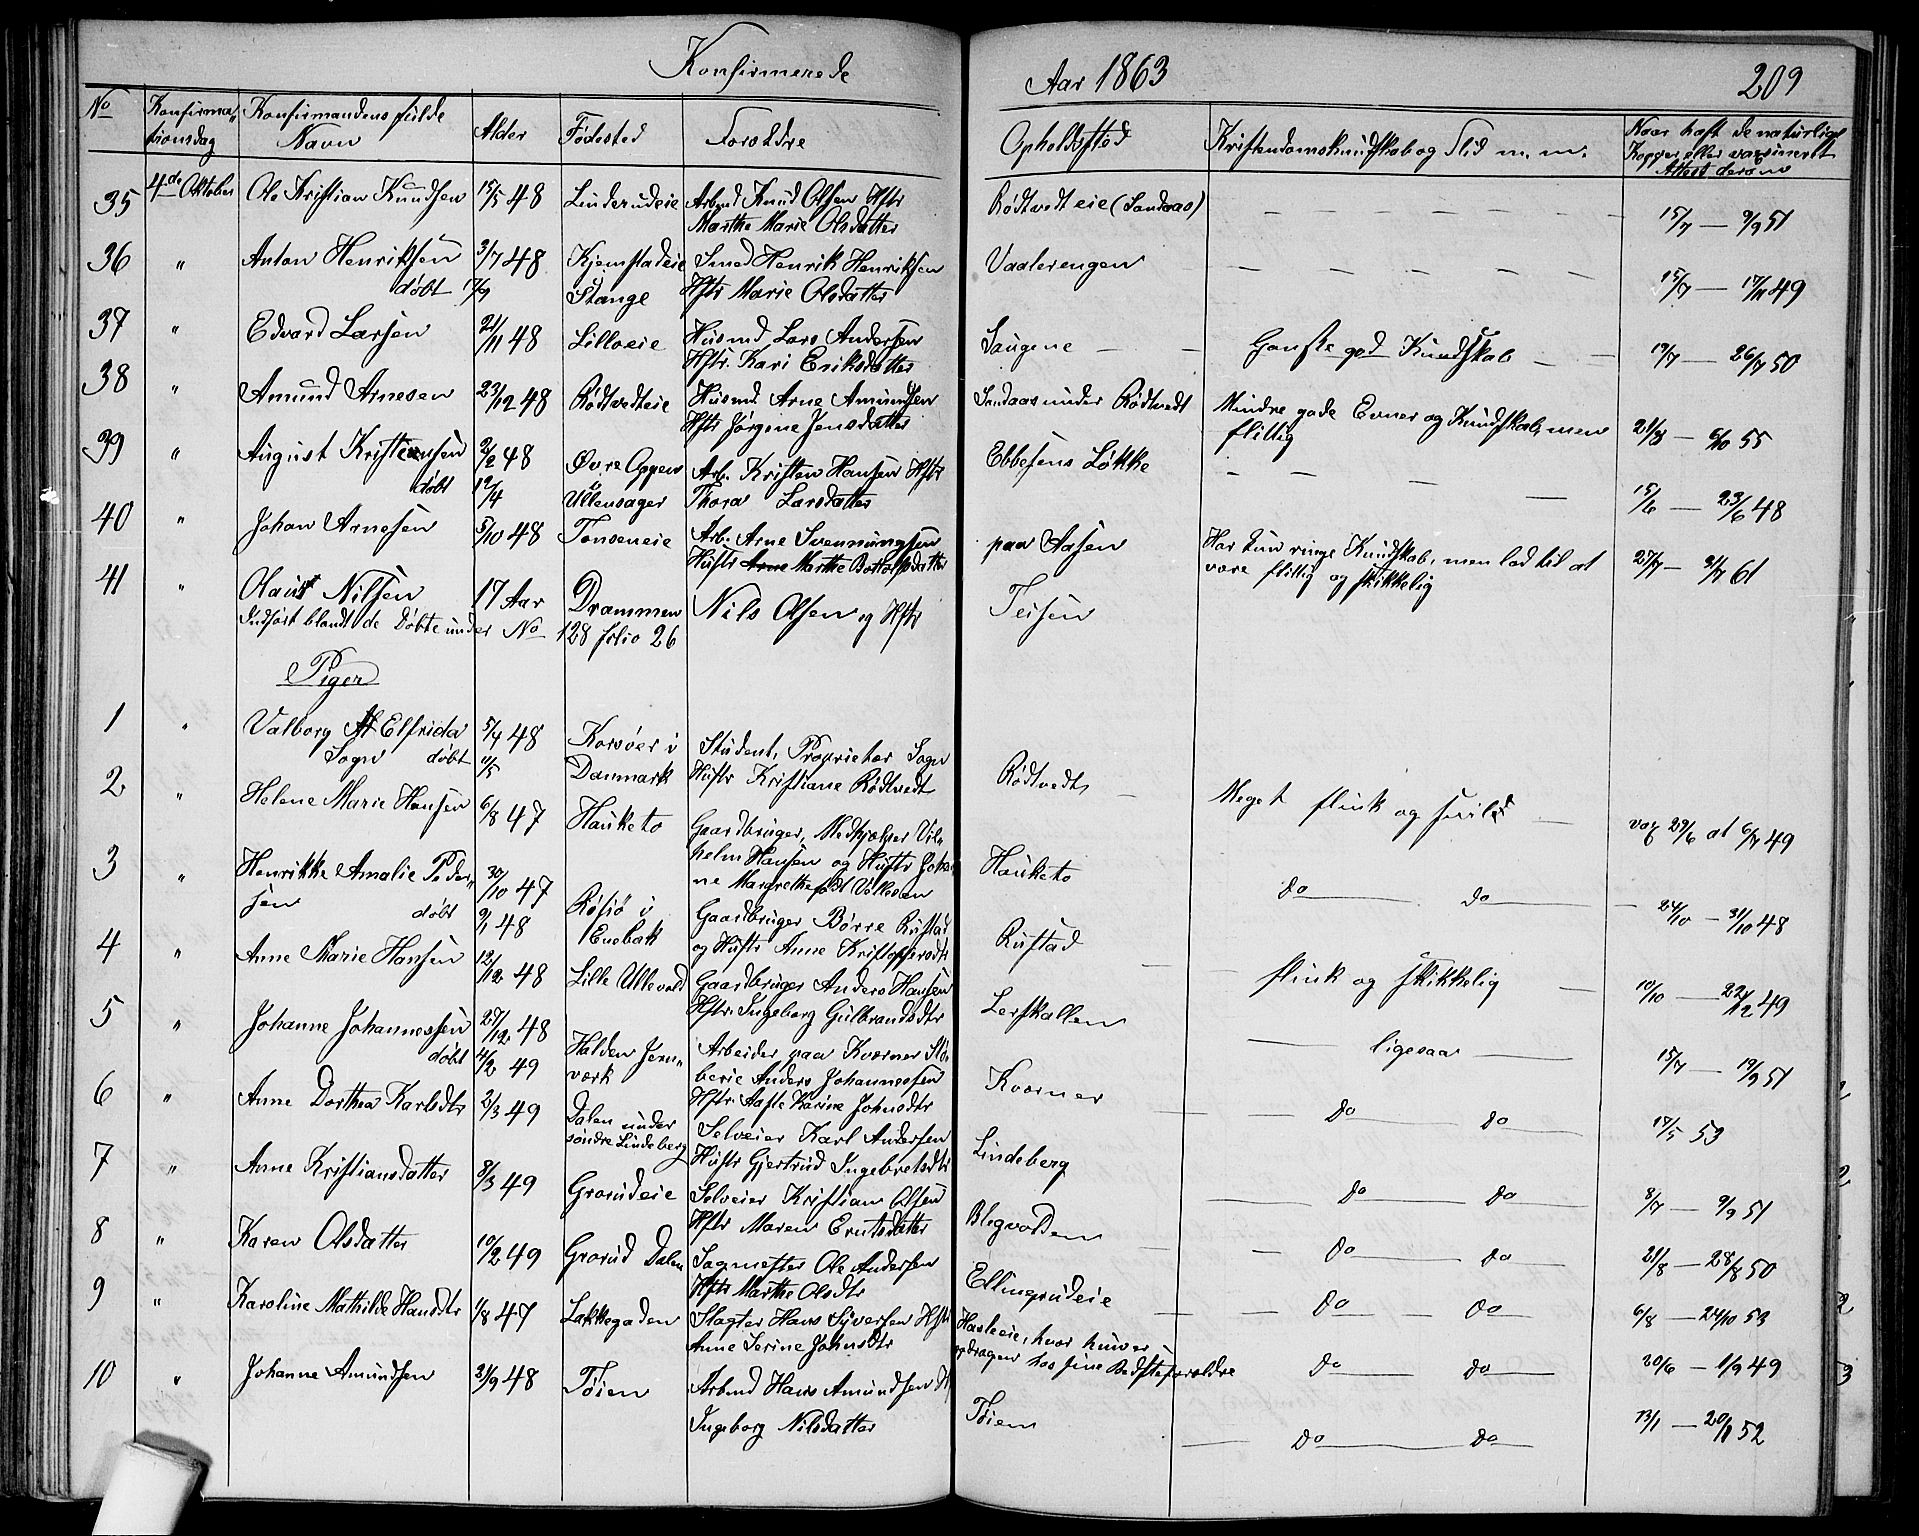 Konfirmerede
Aar 1863
209
No
Konfirma-
tionsdag
Konfirmandens fulde
Navn
Alder
Fødested
Forældre
Opholdssted
Kristendomskundskab og Flid m. m.
Naar haft de naturlige
Kopper eller vaxineret
Attest derom
35 4de Oktober Ole Kristian Knudsen 15/5 48 Linderudeie Arbmd Knud Olsen Hstr Rødtvedteie (Sandaas) — — — 15/7 — 9/9 51
Marthe Marie Olsdatter
36 " Anton Henriksen 3/7 48 Kjemstadeie Smed Henrik Henriksen Vaalerengen — — — 15/7 — 17/11 49
døbt 17/9 Stange Hstr Marie Olsdatter
37 " Edvard Larsen 21/11 48 Lilloeie Husmd Lars Andersen Saugene — — Ganske god Kundskab — — 19/7 — 26/7 50
Hstr. Kari Eriksdatter
38 " Amund Arnesen 23/12 48 Rødtvedteie Husmd. Arne Amundsen Sandaas under Rødtvedt Mindre gode Evner og Kundskab, men 21/8 — 6/10 55
Hstr Jørgine Jensdatter flittig
39 " August Kristensen 2/2 48 Øvre Oppens Arb. Kristen Hansen Hstr Ebbesens Løkke — — — 15/6 — 23/6 48
døbt 12/4 Ullensager Thora Larsdatter
40 " Johan Arnesen 5/10 48 Tonseneie Arb. Arne Svennungsen paa Aasen Har kun ringe Kundskab, men lod til at 27/7 — 31/7 61
Hustr Arne Marthe Bottolfsdatter være flittig og skikkelig
41 " Olaus Nilsen 17 Aar Drammen Nils Olsen og Hstr Teisen
Indført blandt de Døbte under No 128 folio 26
Piger
1 " Valborg Elfrida 5/4 48 Korsøer i Student, Proprietær Sogn Rødtvedt — Meget flink og —
Sogn døbt 11/5 Danmark Hustr Kristiane Rødtvedt
2 " Helene Marie Hansen 6/8 47 Hauketo Gaardbruger, Medhjælper Vil- Hauketo do — do — vax 29/6 at 6/7 49
helm Hansen og Hustr Johan-
ne Margrethe født Vollesen
3 " Henrikke Amalie Peder- 30/10 47 Røsiø i Gaardbruger Børre Rustad Rustad — 24/10 — 31/10 48
sen døbt 9/1 48 Enebak og Hustr Anne Kristoffersdtr
4 " Anne Marie Hansen 12/12 48 Lille Ullevold Gaardbruger Anders Hansen Lerskallen — flink og skikkelig — 10/10 — 22/12 49
Hstr. Ingeborg Gulbrandsdtr
5 " Johanne Johannessen 27/12 48 Halden Jern- Arbeider paa Kværner Stø- Kværner — ligesaa — 15/7 — 19/9 51
døbt 4/2 49 værk berie Anders Johannessen
Hstr Karine Johnsdtr
6 " Anne Dorthea Karlsdtr 2/3 49 Dalen under Selveier Karl Andersen Lindeberg — do — do — 19/5 53
søndre Lindeberg Hustr Gjertrud Ingebretsdtr
7 " Anne Kristiansdatter 8/3 49 Grorudeie Selveier Kristian Olsen Blegvolden — do — do — 8/7 — 9/9 51
Hstr Maren Erntsdatter
8 " Karen Olsdatter 10/2 49 Grorud Dalen Sagmester Ole Andersen Ellingrudeie — do — do — 21/8 — 28/8 50
Hstr Marthe Olsdtr
9 " Karoline Mathilde Hansdtr 1/8 47 Lakkegaden Slagter Hans Syversen Hstr Hasleeie, hvor hun er — do — do — 6/8 — 24/10 53
Anne Serine Johnsdtr opdragen hos sine Bedsteforældre do — do — 20/6 — 1/9 49
10 " Johanne Amundsen 21/9 48 Tøien Arbmd Hans Amundsen Tøien — do — do — 13/1 — 20/1 52
Ingeborg Nilsdatter